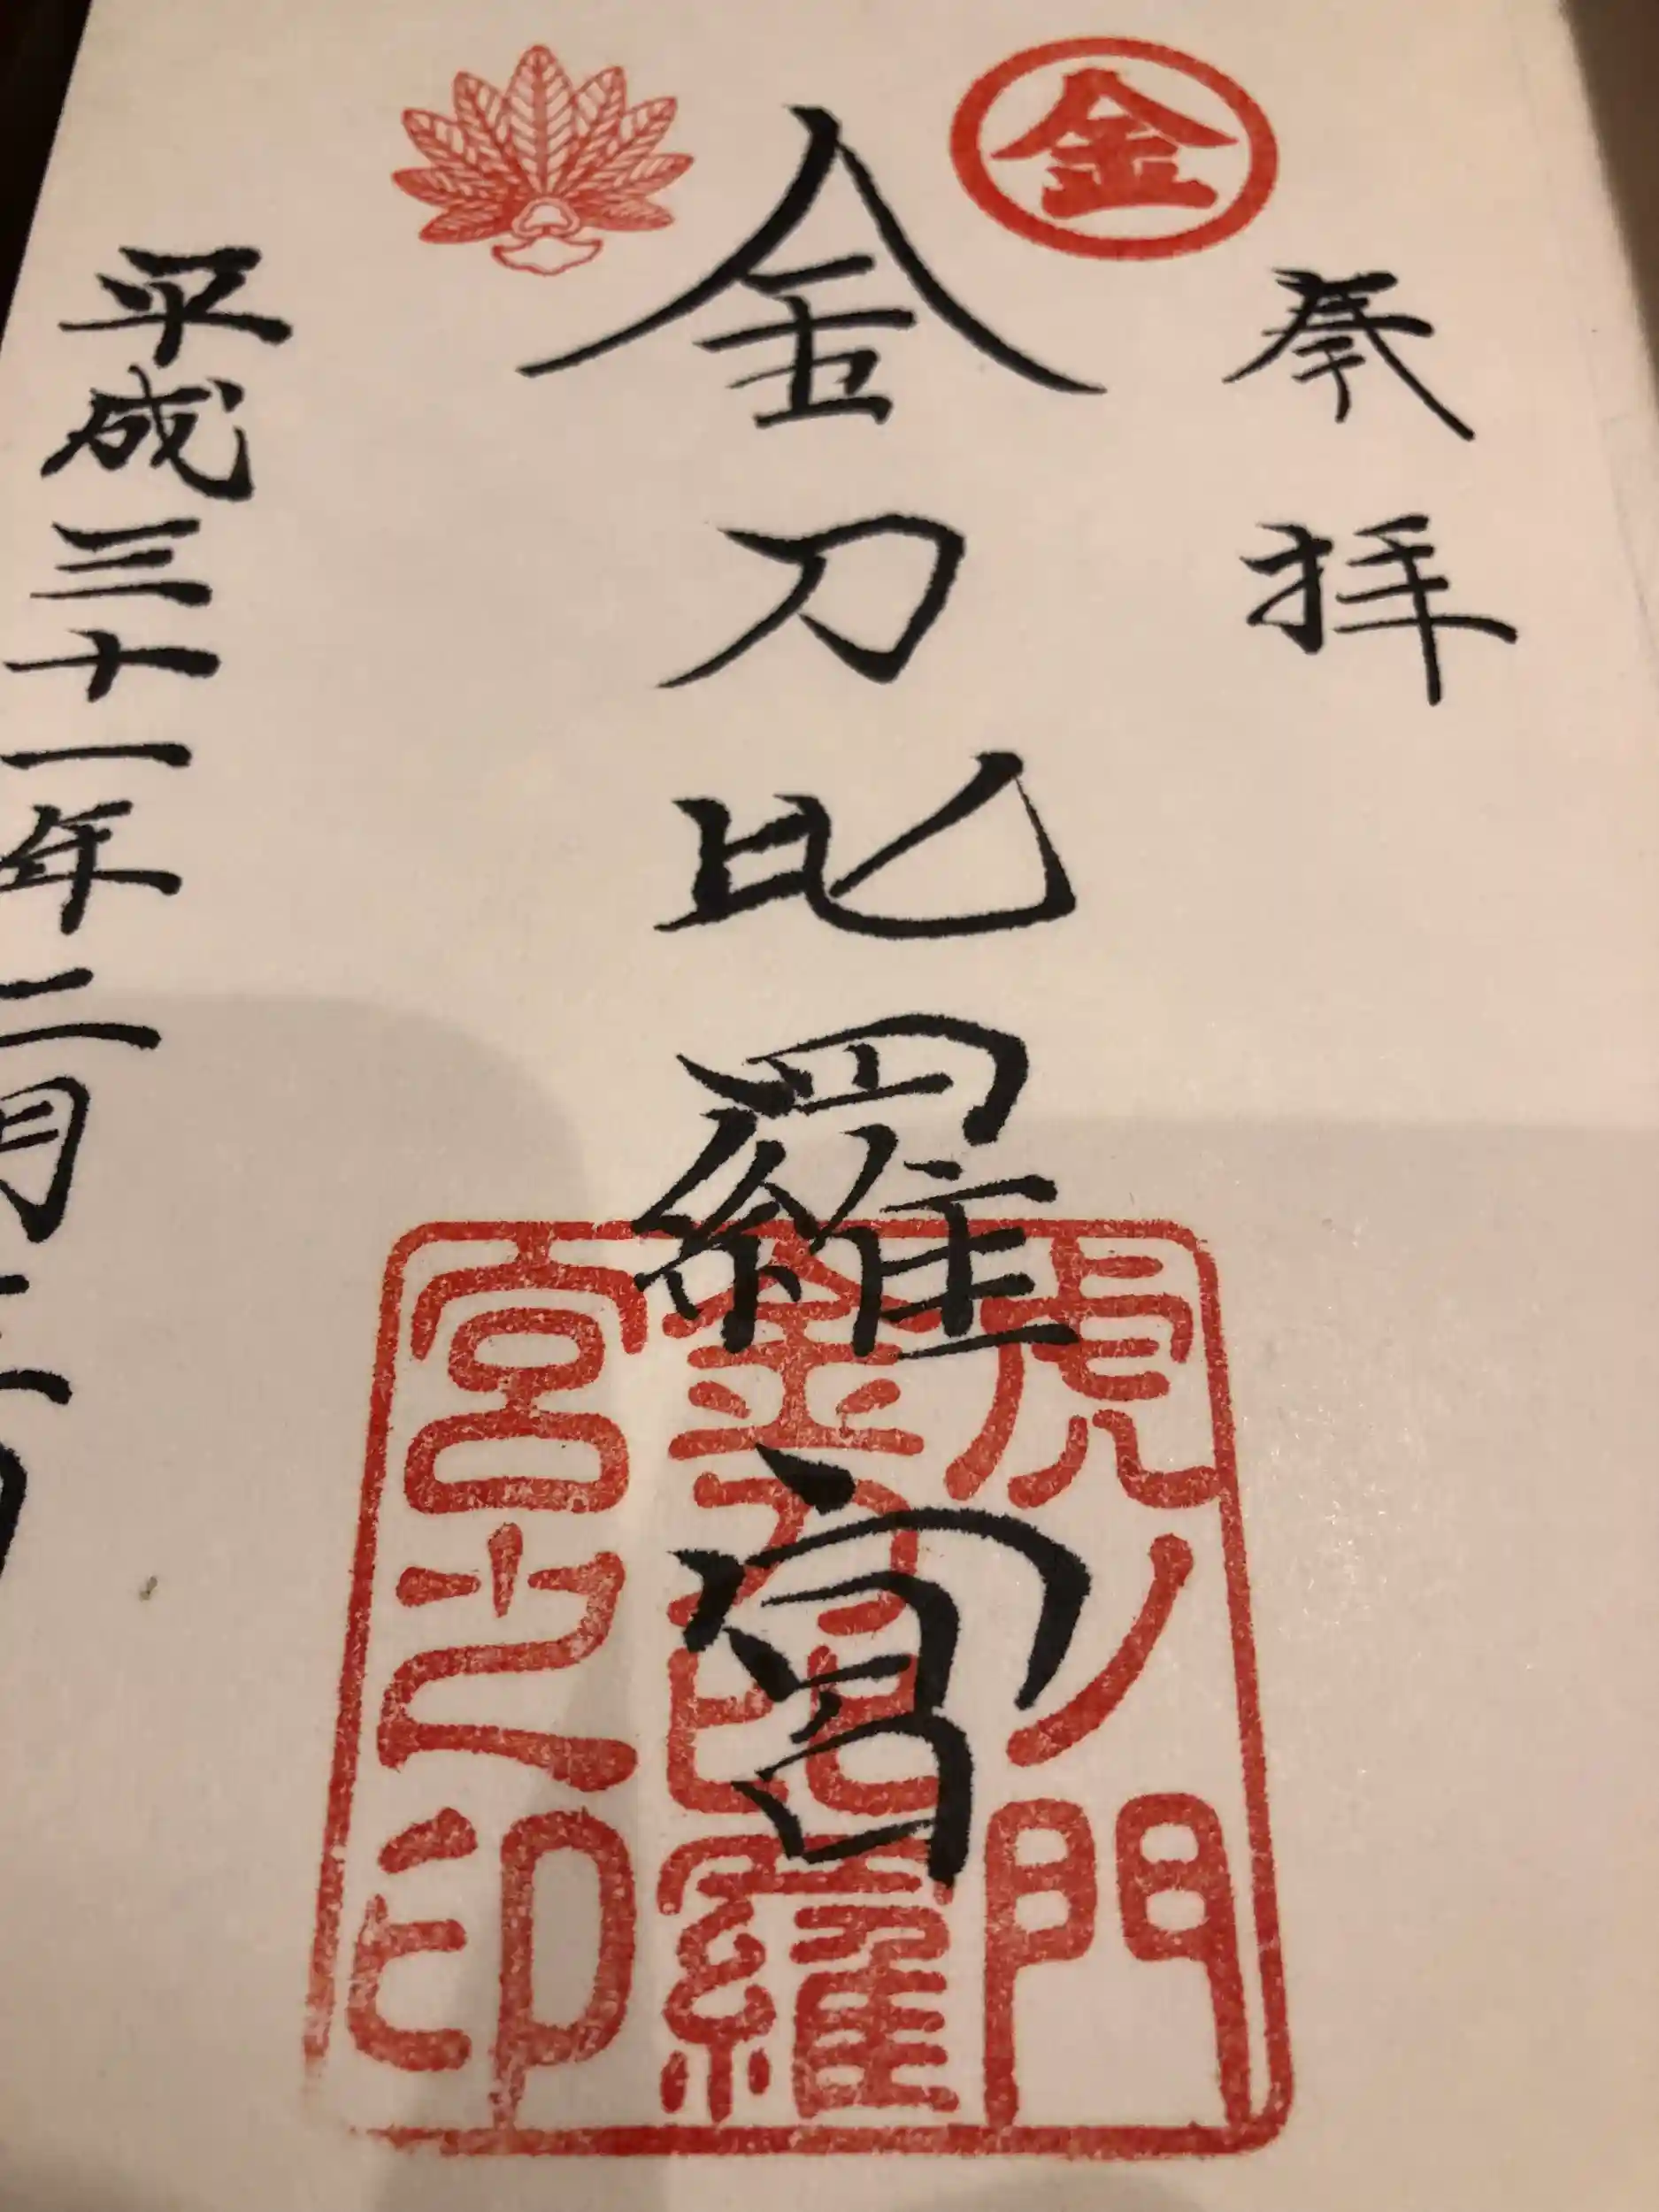 金
奉拝
金刀比羅宮
虎ノ門
金刀比羅
宮之印
平成三十一年二月